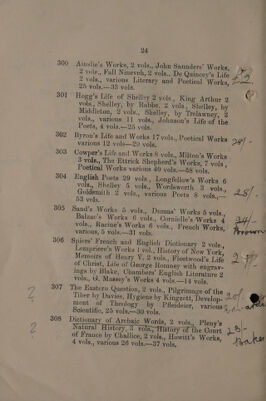 24
300 Ainslie's Works, 2 vols., John Saunders' Works,
2 vols., Fall Nineveh, 2 vols., De Quincey's Life
2 vols., various Literary and Poetical Works,
25 vols.—35 vols.
301 Hogg's Life of Shelley 2 vols., King Arthur 2
vols., Shelley, by Rabbe, 2 vols., Shelley, by
Middleton, 2 vols., Shelley, by Trelawney, 2
vols., various 11 vols., Johnson's Life of the
Poets, 4 vols.—25 vols.
302 Byron's Life and Works 17 vols., Poetical Works
various 12 vols—29 vols.
303 Cowper's Life and Works 8 vols., Milton's Works
3 vols., The Ettrick Shepherd's Works, 7 vols.,
Poetical Works various 40 vols.—58 vols.
304 English Poets 29 vols., Longfellow's Works 6
vols., Shelley 5 vols., Wordsworth 3 vols.,
Goldsmith 2 vols., various Poets 8 vols.,—
53 vols.
25/-
305 Sand's Works 5 vols., Dumas' Works 5 vols.,
Balzac's Works 6 vols., Corneille's Works 4
vols., Racine's Works 6 vols., French Works,
various, 5 vols.—31 vols.
Brown
306 Spiers' French and English Dictionary 2 vols.,
Lempriere's Works 1 vol., History of New York,
Memoirs of Henry V, 2 vols., Fleetwood's Life
of Christ, Life of George Romney with engrav-
ings by Blake, Chambers' English Literature 2
vols., G. Massey's Works 4 vols.—14 vols.
307 The Eastern Question, 2 vols., Pilgrimage of the
Tiber by Davies, Hygiene by Kingzett, Develop-
ment of Theology by Pfleiderer, various
Scientific, 25 vols.—30 vols.
?
308 Dictionary of Archaic Words, 2 vols., Pleny's
Natural History, 3 vols., History of the Court
of France by Challice, 2 vols., Howitt's Works,
4 vols., various 26 vols.—37 vols.
?